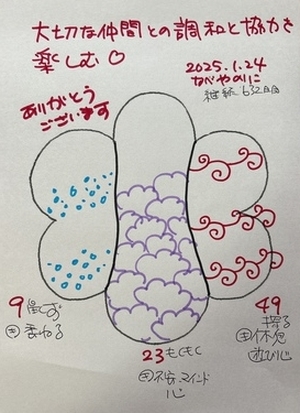 大切な仲間との調和と協力を
楽しむ♡
2025.1.24
かべやのりこ
継続632日目
ありがとう
ございます
9
㋖委ねる
23もくもく
㋖不安、マインド
心
49
探る
㋖休息
遊び心